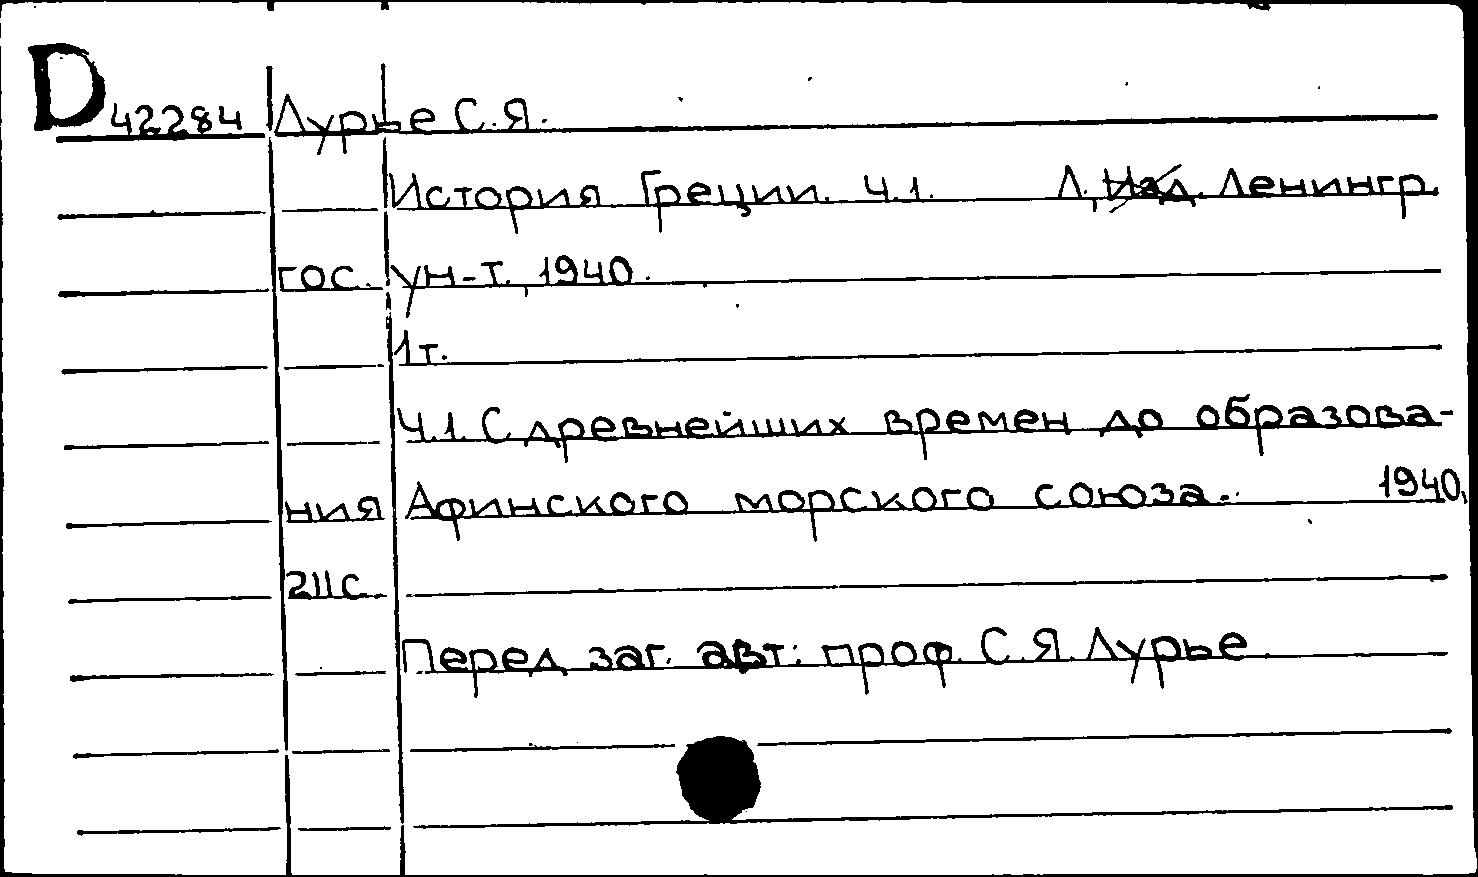 D 42284 Лурье С.Я.
История Греции. Ч.1. Л, Изд. Ленингр.
гос. ун-т., 1940.
1 т.
Ч.1. С древнейших времен до образова-
ния Афинского морского союза. 1940.
211 с.
Перед заг. авт: проф. С.Я. Лурье